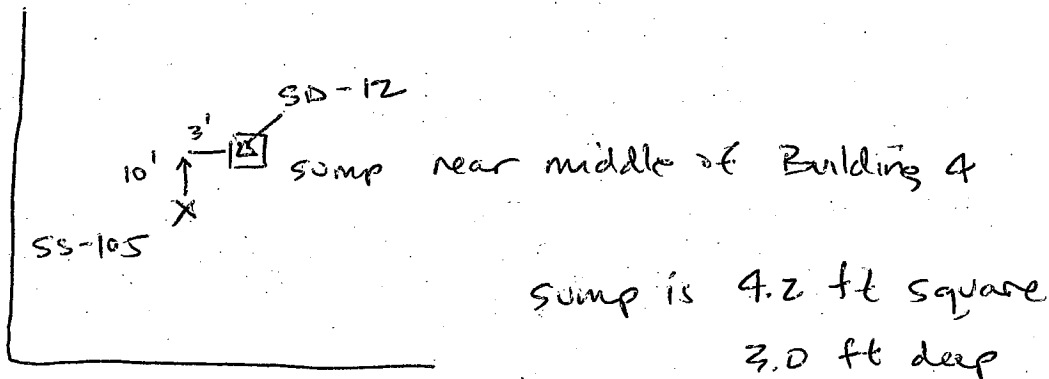 SD-12
3'
25
10'
sump near middle of Building 4
X
SS-105
sump is 4.2 ft square
3.0 ft deep